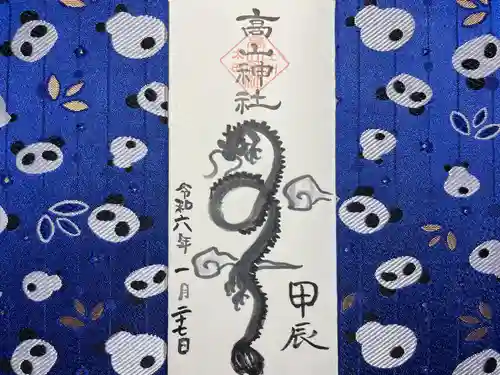 高山神社
甲辰
令和六年一月二十七日